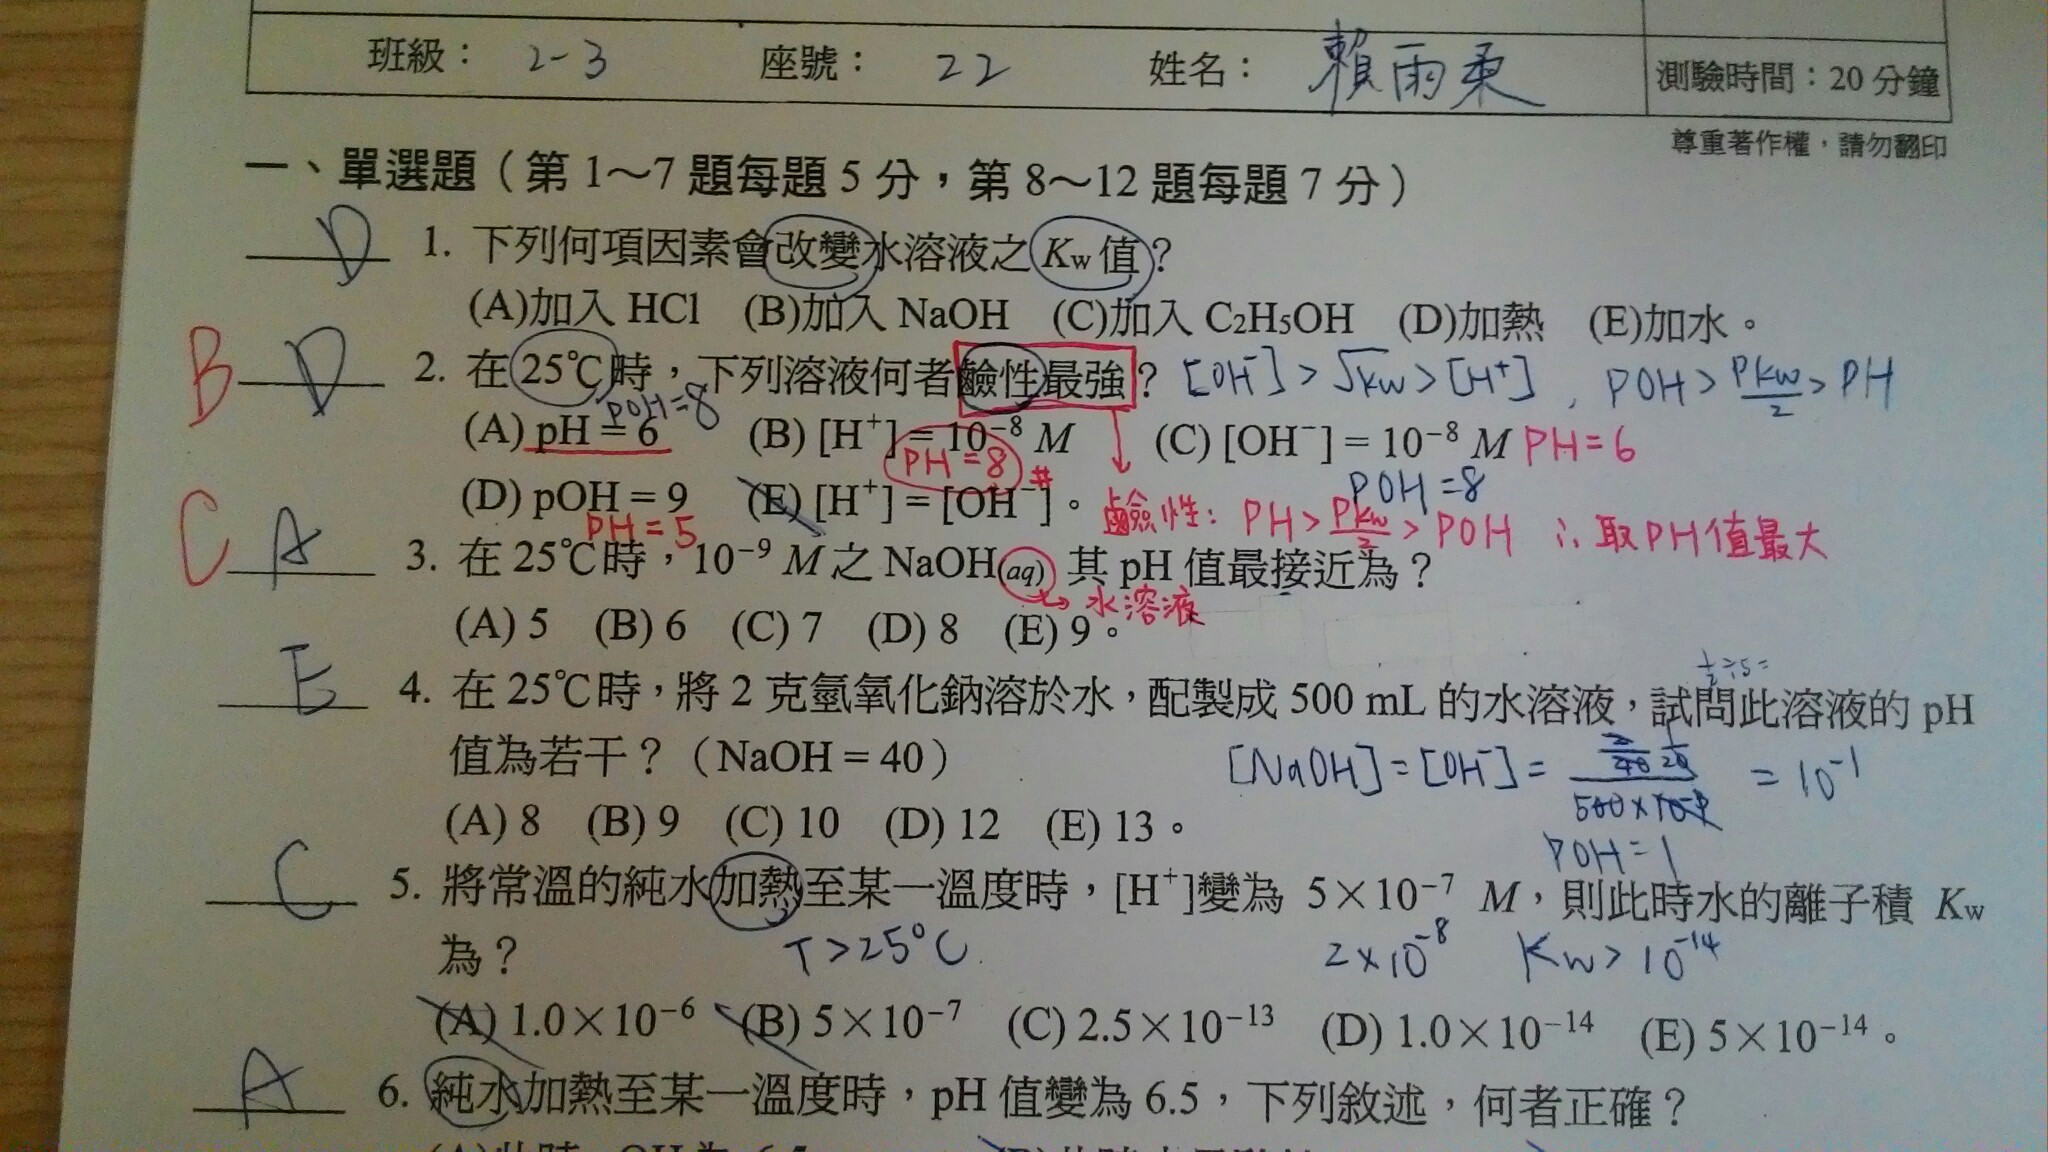 班級： 2-3 座號： 22 姓名： 賴雨柔 測驗時間：20 分鐘
尊重著作權，請勿翻印
一、單選題（第 1～7 題每題 5 分，第 8～12 題每題 7 分）
D 1. 下列何項因素會改變水溶液之 Kw 值？
(A)加入 HCl (B)加入 NaOH (C)加入 C2H5OH (D)加熱 (E)加水。
B D 2. 在 25℃時，下列溶液何者鹼性最強？ [OH⁻] > √Kw > [H⁺] , POH > PKw/2 > PH
POH=8
(A) pH = 6 (B) [H⁺] = 10⁻⁸ M (C) [OH⁻] = 10⁻⁸ M PH=6
PH=8 # POH=8
(D) pOH = 9 (E) [H⁺] = [OH⁻]。 鹼性： PH > PKw/2 > POH ∴取PH值最大
PH=5
C A 3. 在 25℃時，10⁻⁹ M 之 NaOH(aq) 其 pH 值最接近為？
→ 水溶液
(A) 5 (B) 6 (C) 7 (D) 8 (E) 9。
E 4. 在 25℃時，將 2 克氫氧化鈉溶於水，配製成 500 mL 的水溶液，試問此溶液的 pH
值為若干？（NaOH = 40） [NaOH] = [OH⁻] = = 10⁻¹
(A) 8 (B) 9 (C) 10 (D) 12 (E) 13。
POH=1
C 5. 將常溫的純水加熱至某一溫度時，[H⁺]變為 5×10⁻⁷ M，則此時水的離子積 Kw
為？ T>25°C 2×10⁻⁸ Kw>10⁻¹⁴
(A) 1.0×10⁻⁶ (B) 5×10⁻⁷ (C) 2.5×10⁻¹³ (D) 1.0×10⁻¹⁴ (E) 5×10⁻¹⁴。
A 6. 純水加熱至某一溫度時，pH 值變為 6.5，下列敘述，何者正確？